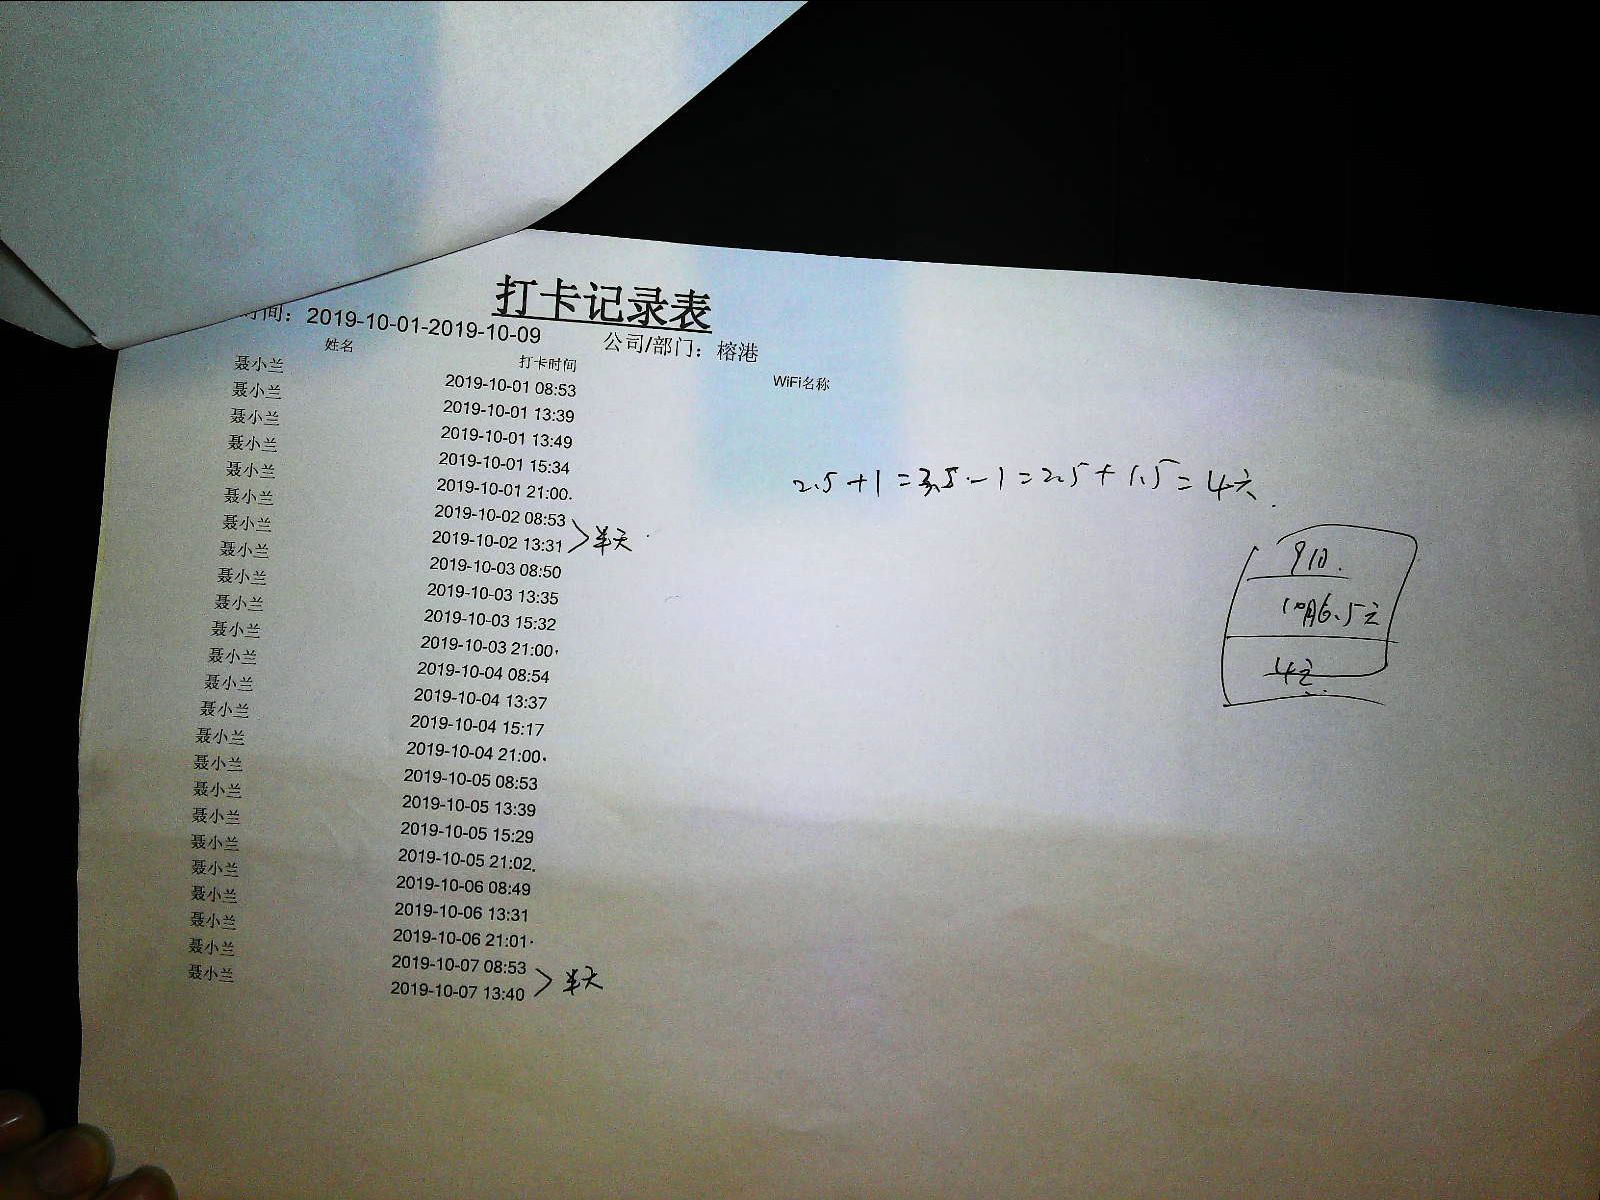 打卡记录表
时间：2019-10-01-2019-10-09 公司/部门：榕港
姓名 打卡时间 WiFi名称
聂小兰 2019-10-01 08:53
聂小兰 2019-10-01 13:39
聂小兰 2019-10-01 13:49
聂小兰 2019-10-01 15:34
聂小兰 2019-10-01 21:00
聂小兰 2019-10-02 08:53
聂小兰 2019-10-02 13:31 半天
聂小兰 2019-10-03 08:50
聂小兰 2019-10-03 13:35
聂小兰 2019-10-03 15:32
聂小兰 2019-10-03 21:00
聂小兰 2019-10-04 08:54
聂小兰 2019-10-04 13:37
聂小兰 2019-10-04 15:17
聂小兰 2019-10-04 21:00
聂小兰 2019-10-05 08:53
聂小兰 2019-10-05 13:39
聂小兰 2019-10-05 15:29
聂小兰 2019-10-05 21:02
聂小兰 2019-10-06 08:49
聂小兰 2019-10-06 13:31
聂小兰 2019-10-06 21:01
聂小兰 2019-10-07 08:53
聂小兰 2019-10-07 13:40 半天
2.5+1=3.5-1=2.5+1.5=4天